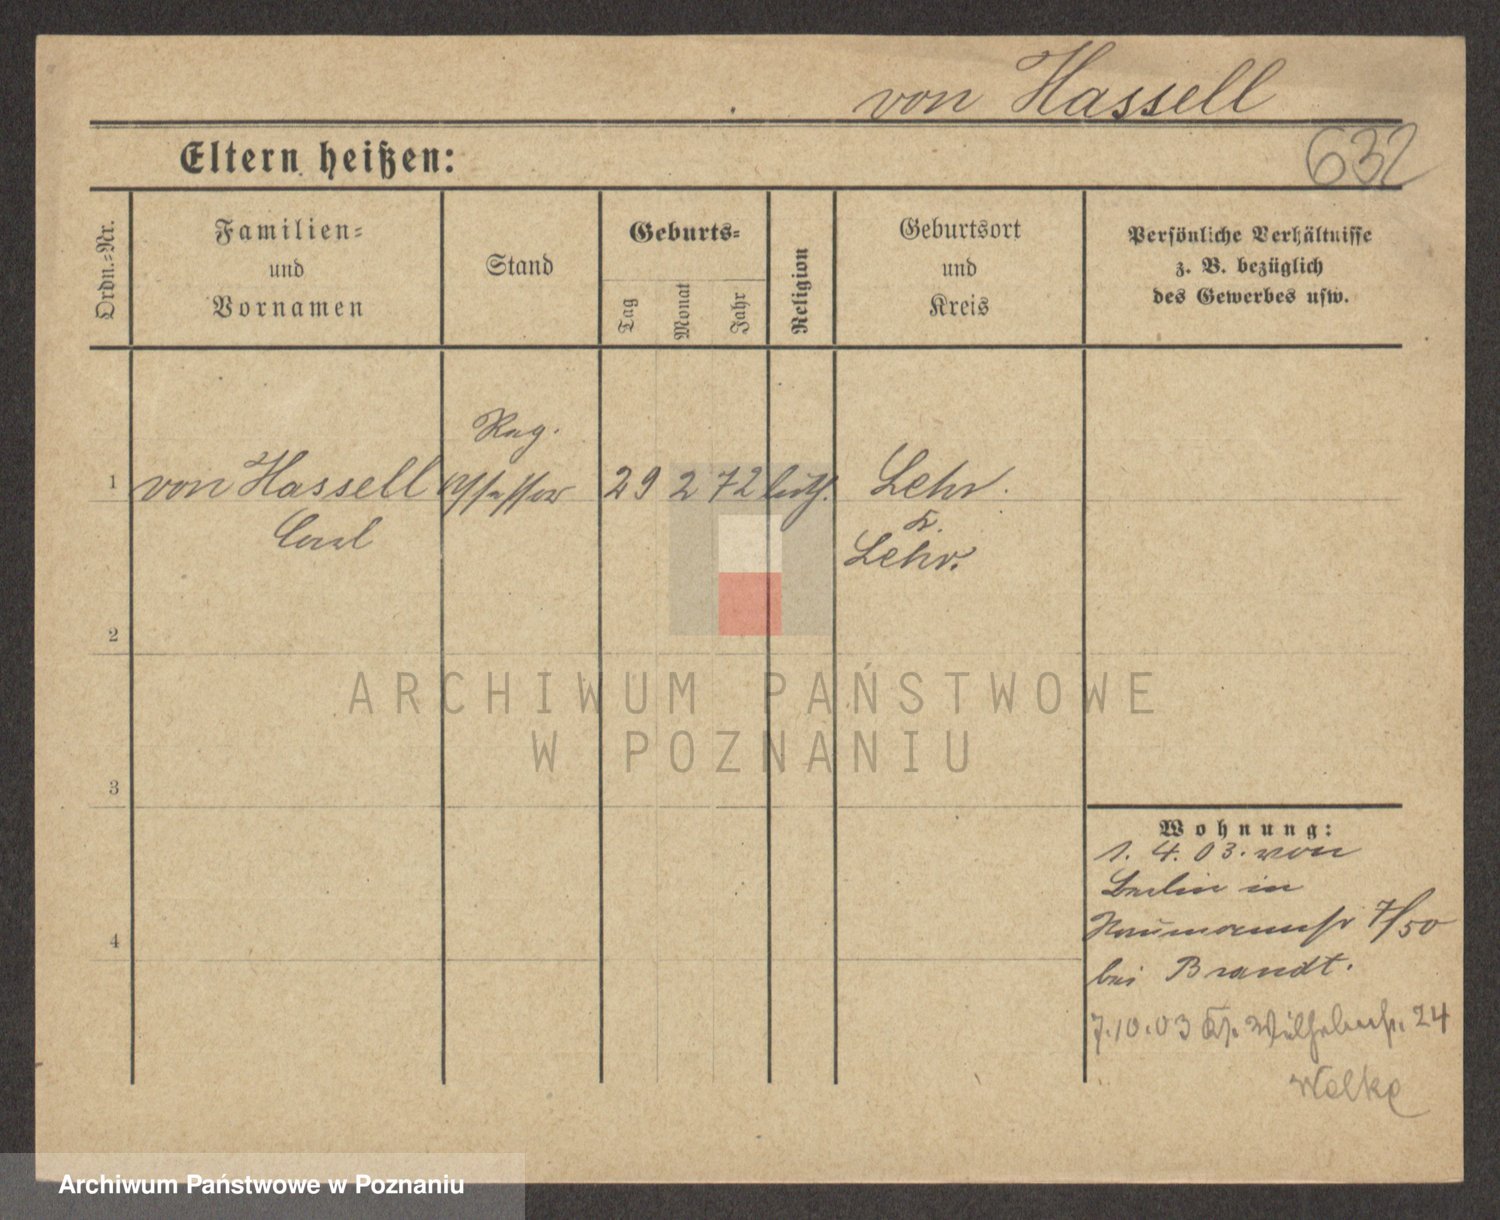 von Hassell
632
Eltern heißen:
Ordn.-Nr.
Familien-
und
Vornamen
Stand
Geburts-
Tag
Monat
Jahr
Religion
Geburtsort
und
Kreis
Persönliche Verhältnisse
z. B. bezüglich
des Gewerbes usw.
Reg.
1 von Hassell Assessor 29 2 72 luth. Lehr.
Carl
K.
Lehr.
2
3
4
Wohnung:
1. 4. 03. von
Berlin in
Naumannstr 7/50
bei Brandt.
7.10.03 24
Welke
ARCHIWUM PAŃSTWOWE
W POZNANIU
Archiwum Państwowe w Poznaniu